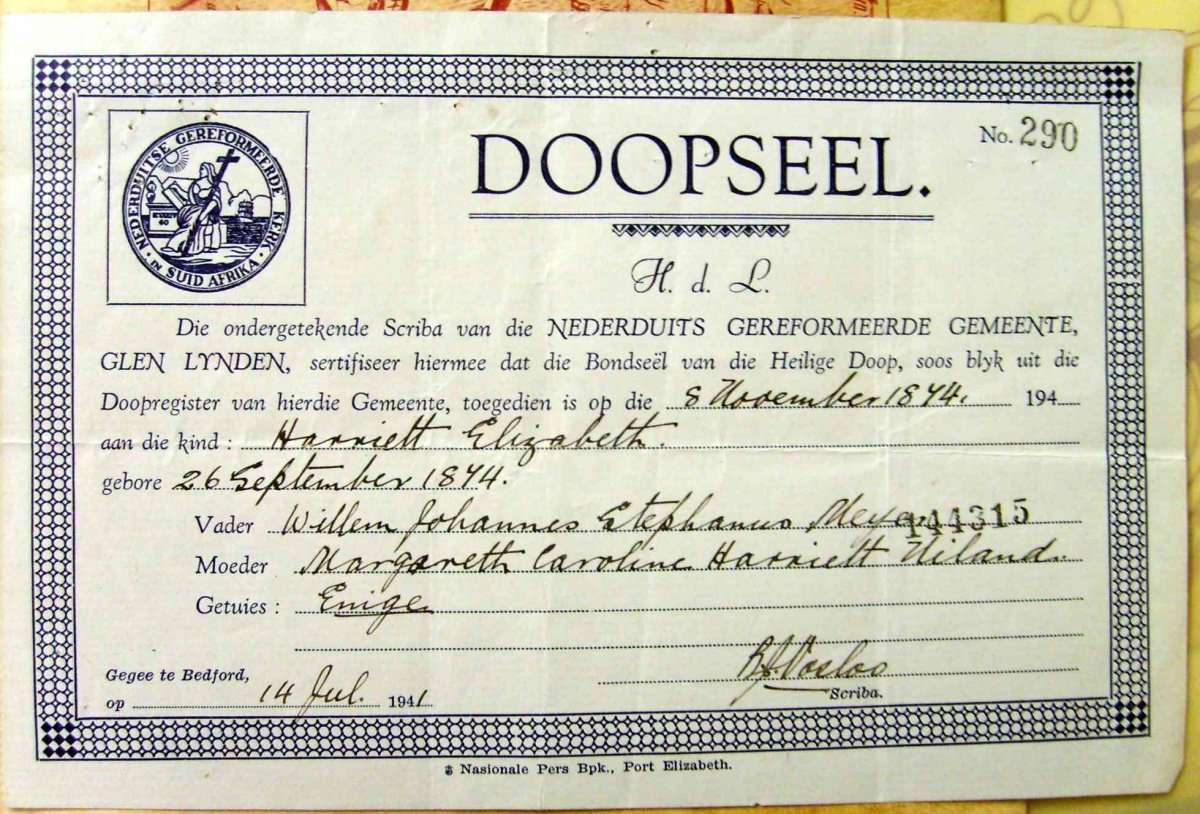 NEDERDUITSE GEREFORMEERDE KERK
IN SUID AFRIKA
No. 290
DOOPSEEL.
H. d. L.
Die ondergetekende Scriba van die NEDERDUITS GEREFORMEERDE GEMEENTE,
GLEN LYNDEN, sertifiseer hiermee dat die Bondseël van die Heilige Doop, soos blyk uit die
Doopregister van hierdie Gemeente, toegedien is op die 8 November 1874. 194
aan die kind : Harriett Elizabeth.
gebore 26 September 1874.
Vader Willem Johannes Stephanus Meyer 144315
Moeder Margareth Caroline Harriett Niland.
Getuies : Enige
Vosloo
Scriba.
Gegee te Bedford,
op 14 Jul. 1941
Nasionale Pers Bpk., Port Elizabeth.